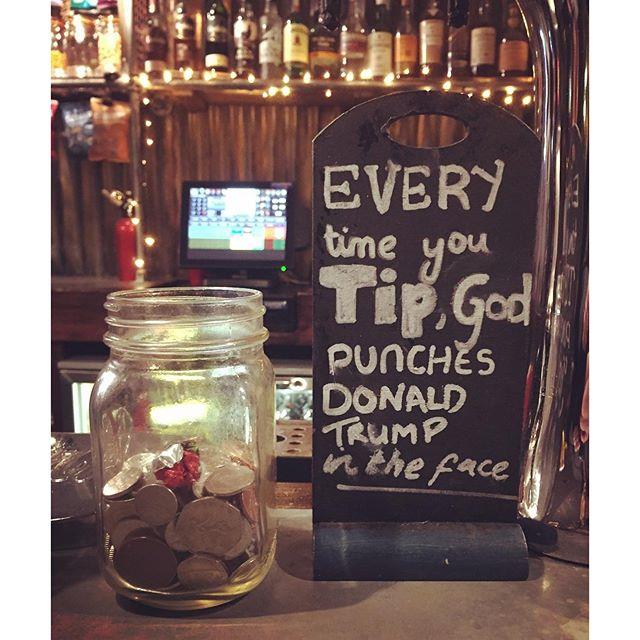 EVERY
time you
Tip, God
PUNCHES
DONALD
TRUMP
in the face